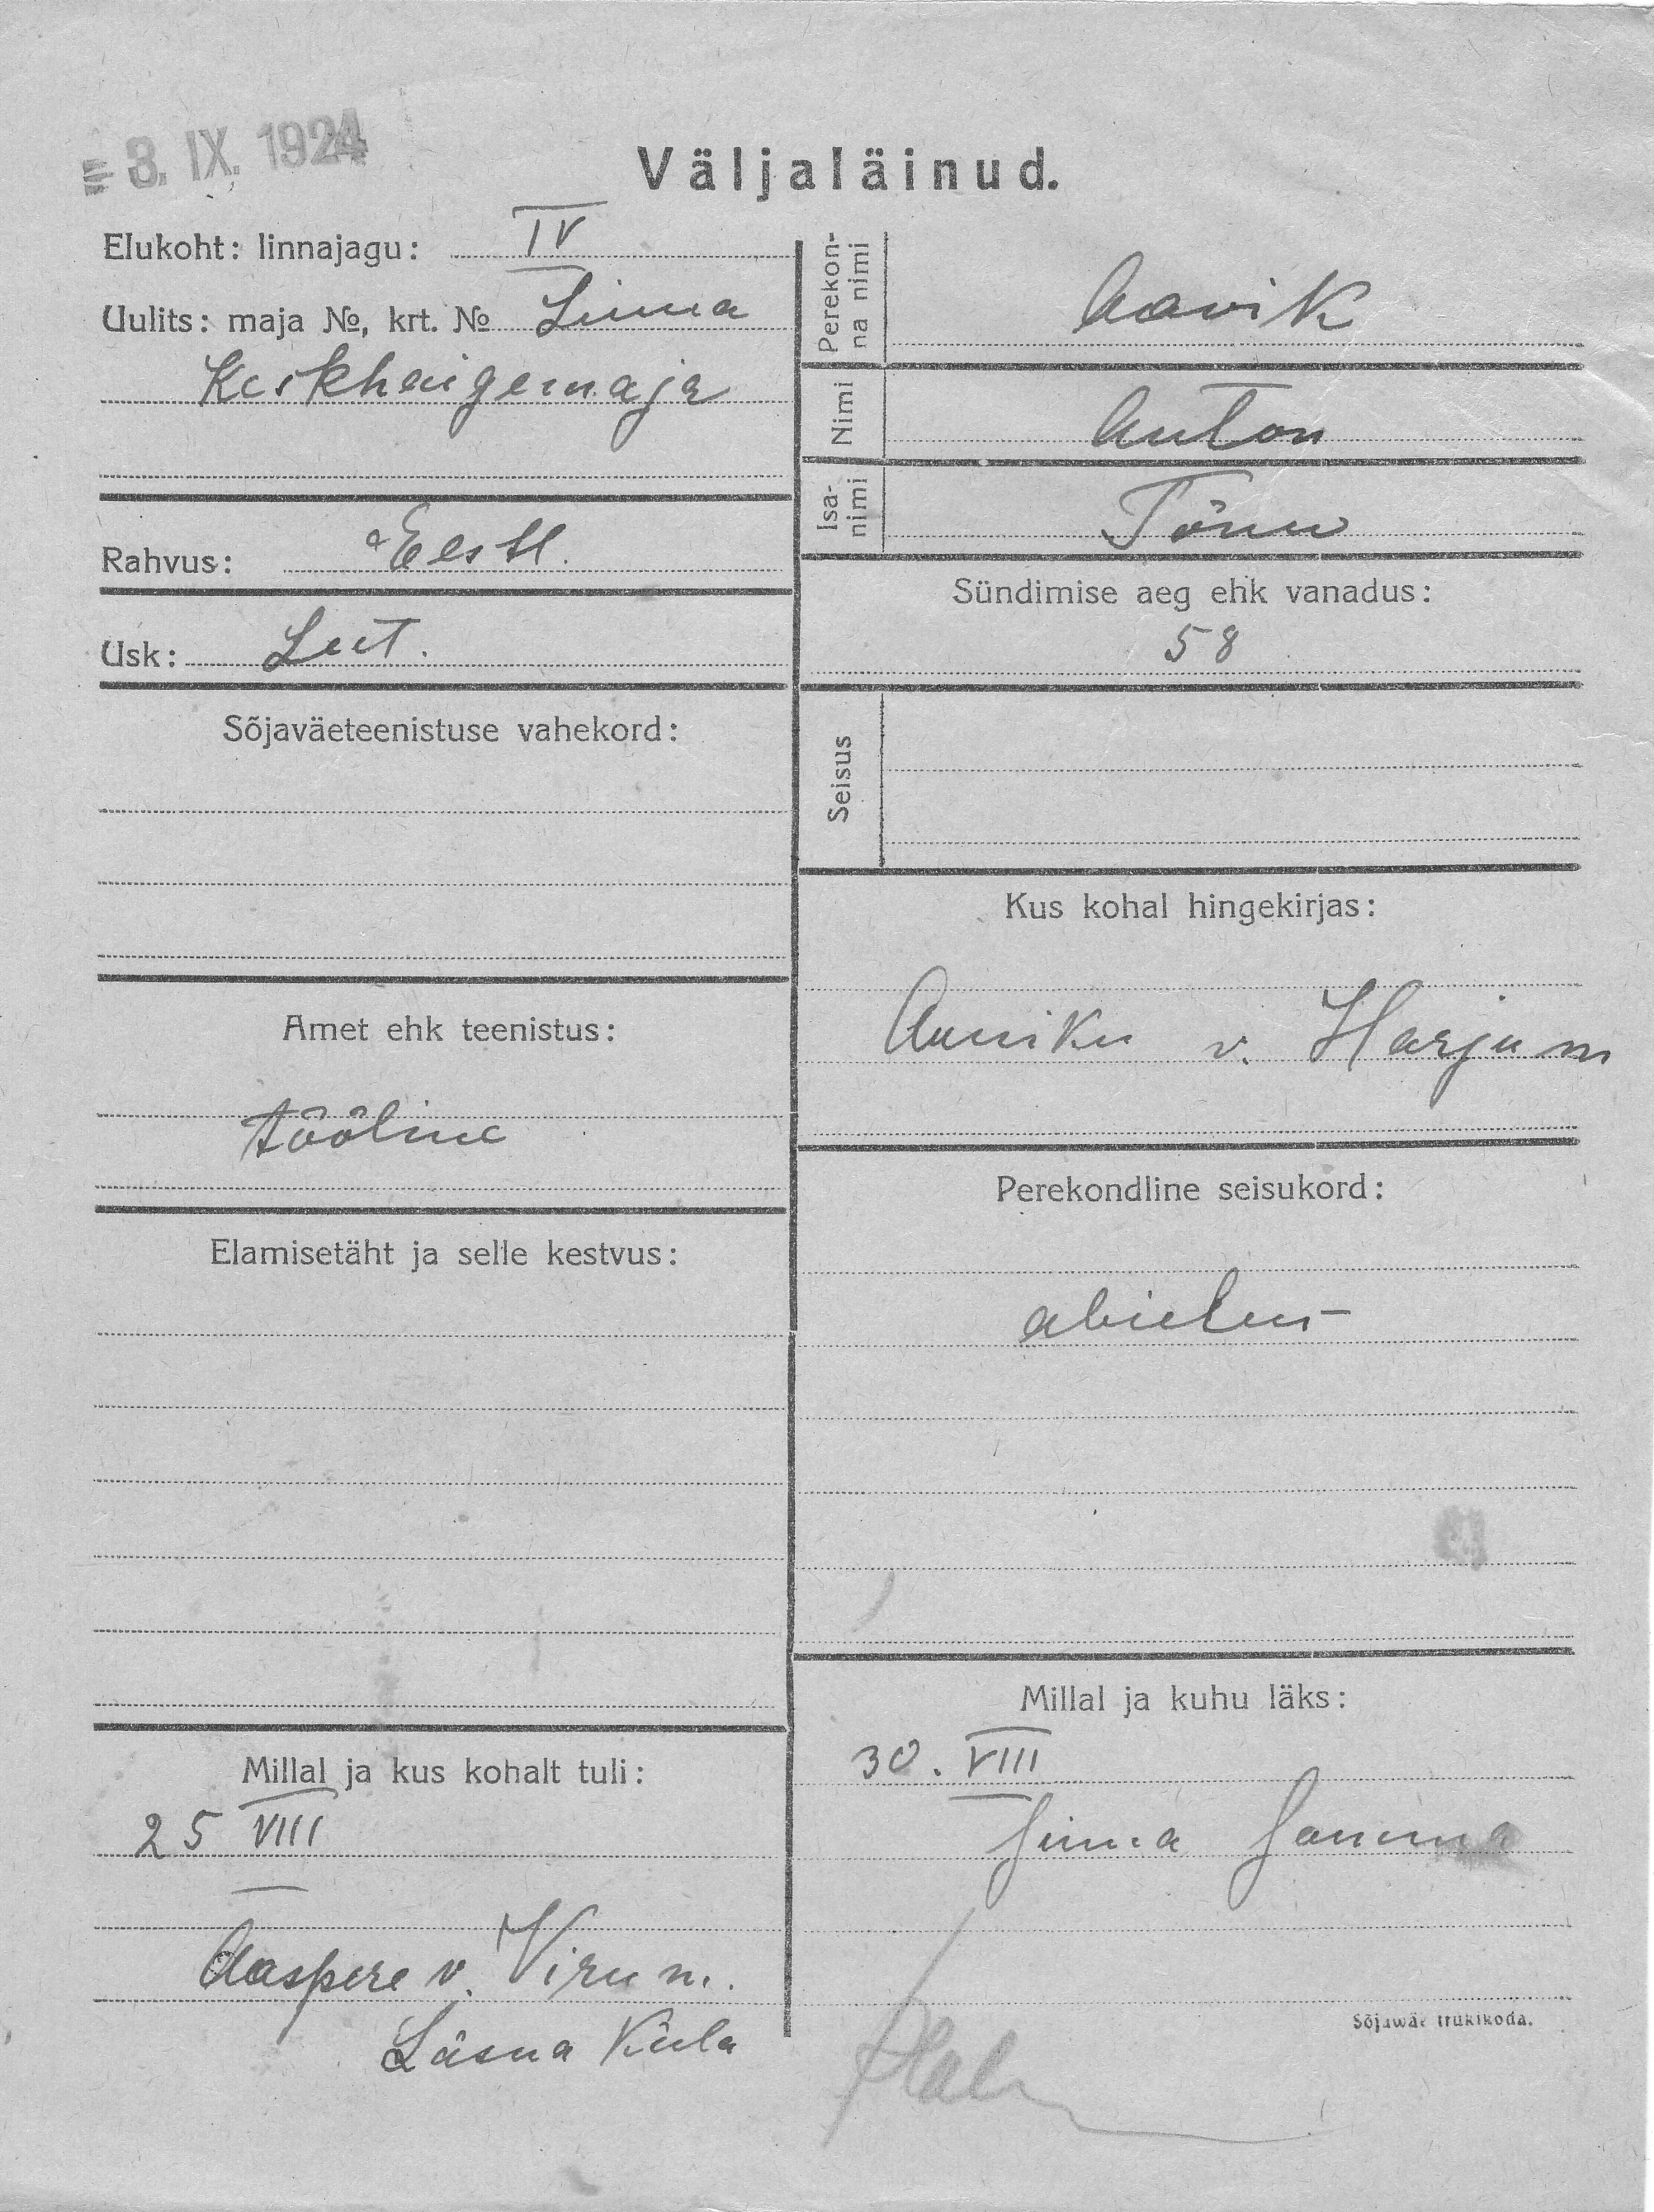 = 3. IX. 1924
Väljaläinud.
Elukoht: linnajagu: IV
Uulits: maja №, krt. № Linna
Keskhaigemaja
Rahvus: Eestl.
Usk: Lut.
Sõjaväeteenistuse vahekord:
Amet ehk teenistus:
tööline
Elamisetäht ja selle kestvus:
Millal ja kus kohalt tuli:
25 VIII
Aaspere v. Viru m.
Läsna Küla
Perekon-
na nimi
Aavik
Nimi
Anton
Isa-
nimi
Tõnu
Sündimise aeg ehk vanadus:
58
Seisus
Kus kohal hingekirjas:
v. Harju m
Perekondline seisukord:
abielus
Millal ja kuhu läks:
30. VIII
Sinna Samma
Sõjawäe trükikoda.